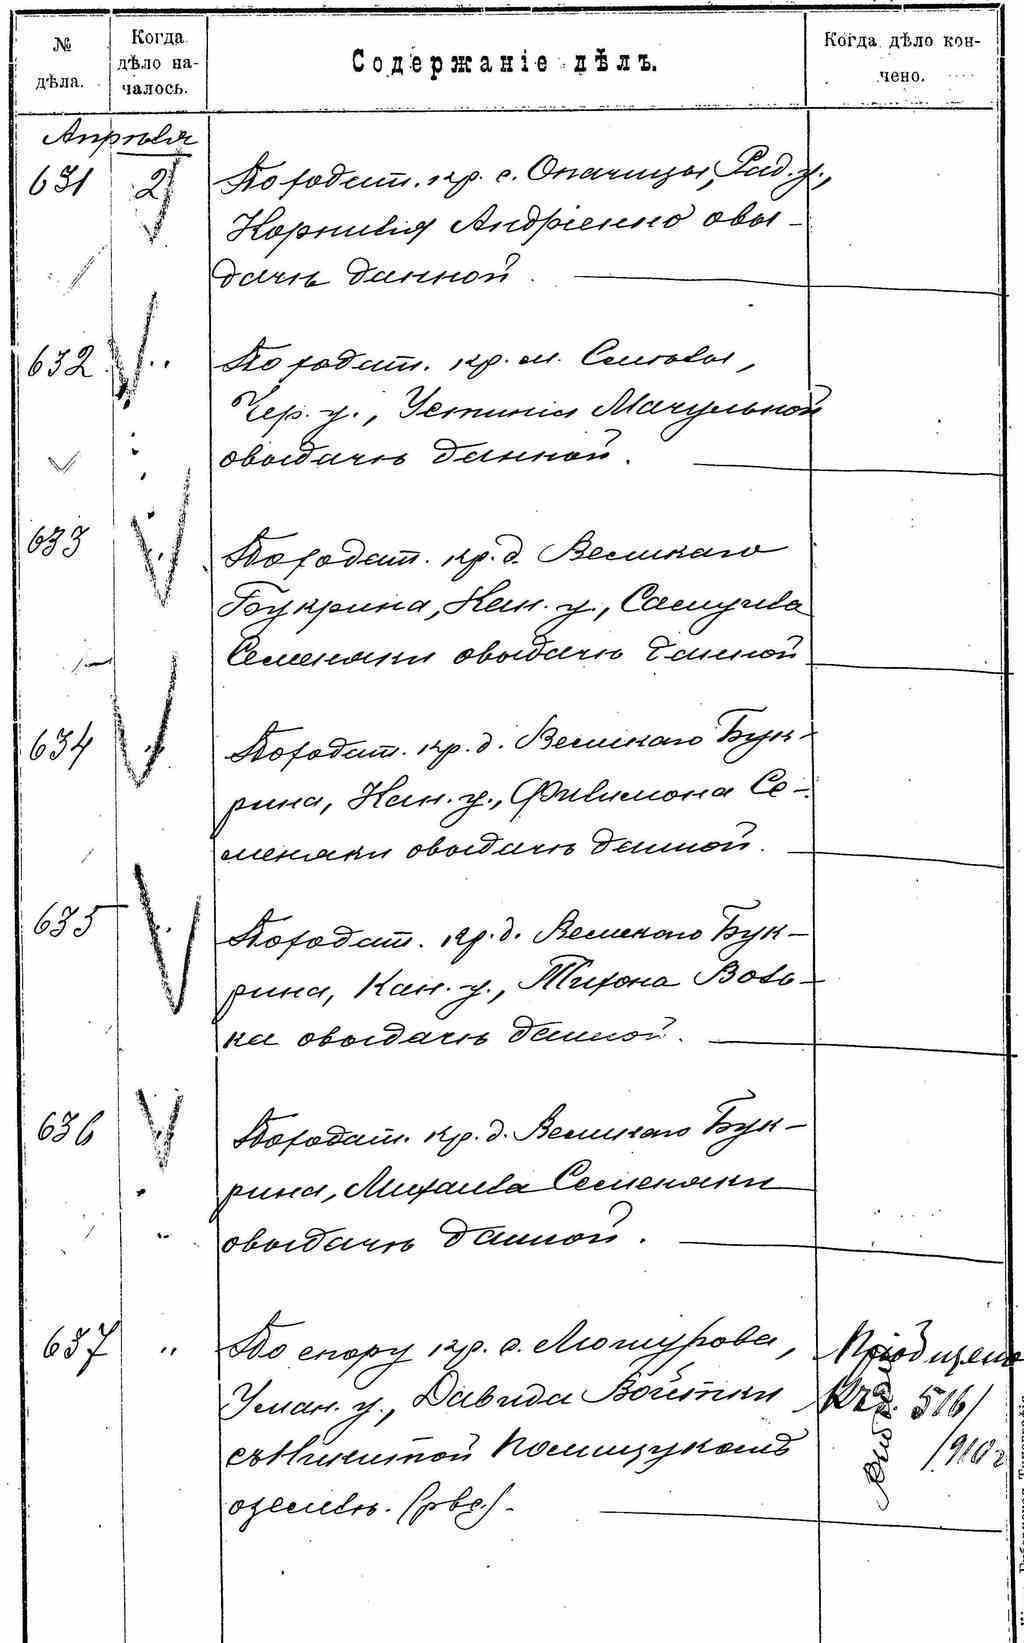 № дѣла.
Когда дѣло началось.
Содержаніе дѣлъ.
Когда дѣло кончено.
Апрѣля
631 2 По ходат. кр. с. Опачицы, Рад. у.,
Корнилія Андріенко о вы-
дачѣ данной.
632 " По ходат. кр. м. Смѣлы,
Чер. у., Устиніи Мачульной
о выдачѣ данной.
633 " По ходат. кр. д. Великаго
Букрина, Кан. у., Самуила
Семеняки о выдачѣ данной
634 " По ходат. кр. д. Великаго Бук-
рина, Кан. у., Филимона Се-
меняки о выдачѣ данной.
635 " По ходат. кр. д. Великаго Бук-
рина, Кан. у., Тихона Вовъ-
ка о выдачѣ данной.
636 " По ходат. кр. д. Великаго Бук-
рина, Михаила Семеняки
о выдачѣ данной.
637 " По спору кр. с. Мошурова, Пріобщено
Уман. у., Давида Войтки 516/
съ Никитой Полищукомъ /910 г
о землѣ.